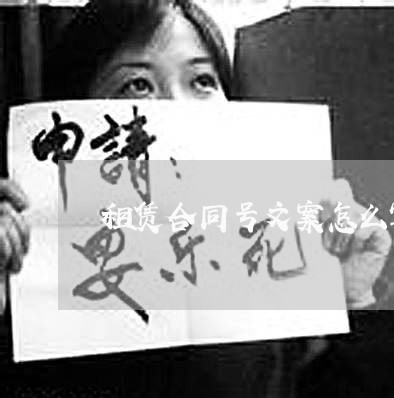 申請：
租赁合同号文案怎么
安乐死